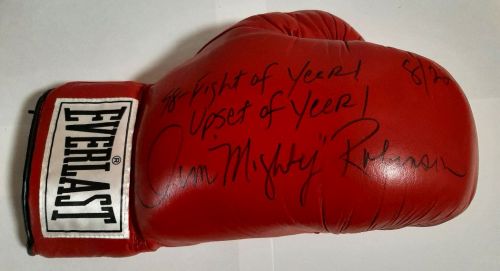 EVERLAST®
Fight of YeaR!
Upset of YeaR!
8/20
Jim "Mighty" Robinson